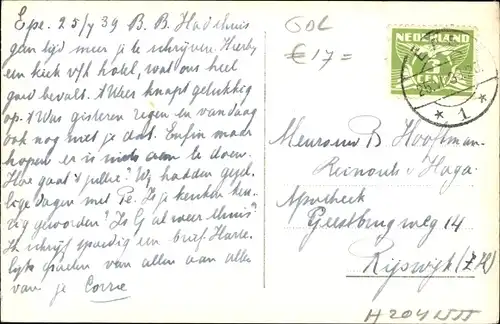 Epe. 25/7 39 B. B. Had thuis
geen tijd meer je te schrijven. Hierby
een kiek v/h hotel, wat ons heel
goed bevalt. 't Weer knapt gelukkig
op. 't Was gisteren regen en vandaag
ook nog niet je dat. Enfin maar
hopen er is niets aan te doen.
Hoe gaat 't jullie? Wij hadden gezel-
lige dagen met Pé. Is je keuken keu-
rig geworden? Is G al weer thuis?
Ik schrijf spoedig een brief. Harte-
lijke groeten van allen aan allen
van je Corrie
GDL
€ 17=
NEDERLAND
* 1 *
Mevrouw B Hooftman-
Reinouts v. Haga.
Apotheek
Geestbrugweg 14
Rijswijk (Z.H)